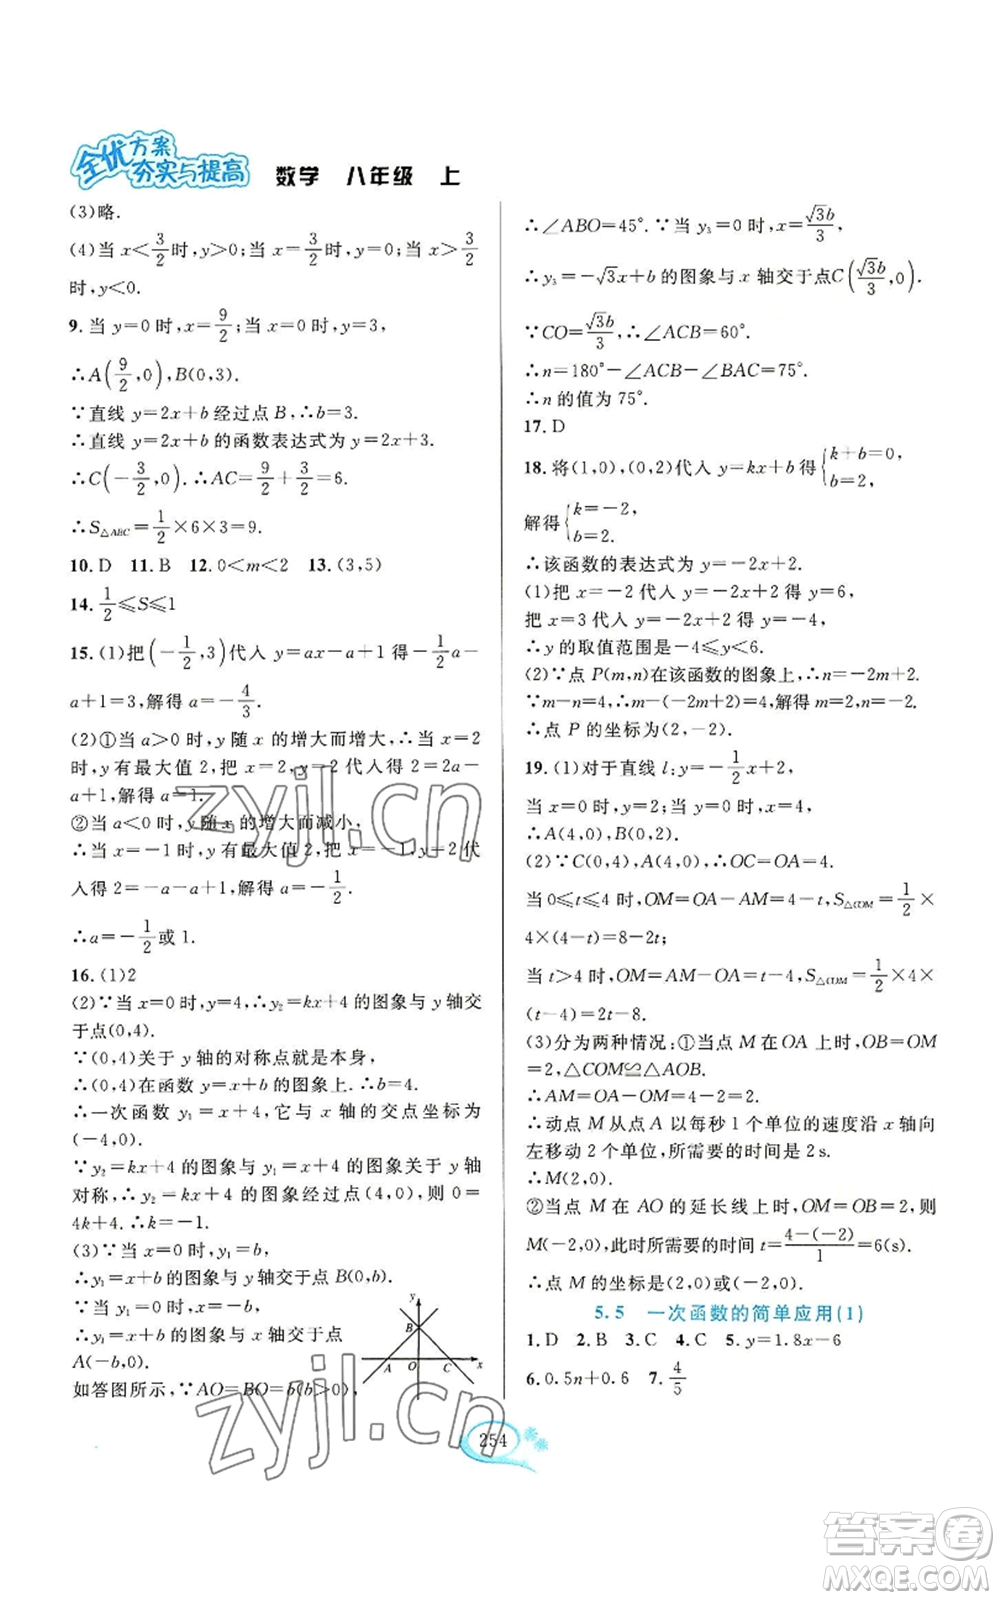 全优方案
夯实与提高 数学 八年级 上
(3)略.
(4)当 x<3/2时,y>0;当 x=3/2时,y=0;当 x>3/2
时,y<0.
9.当 y=0 时,x=9/2;当 x=0 时,y=3,
∴A(9/2,0),B(0,3).
∵直线 y=2x+b 经过点 B,∴b=3.
∴直线 y=2x+b 的函数表达式为 y=2x+3.
∴C(-3/2,0).∴AC=9/2+3/2=6.
∴S△ABC=1/2×6×3=9.
10.D 11.B 12.0<m<2 13.(3,5)
14.1/2≤S≤1
15.(1)把(-1/2,3)代入 y=ax-a+1 得-1/2a-
a+1=3,解得 a=-4/3.
(2)①当 a>0 时,y 随 x 的增大而增大,∴当 x=2
时,y 有最大值 2,把 x=2,y=2 代入得 2=2a-
a+1,解得 a=1.
②当 a<0 时,y 随 x 的增大而减小,
∴当 x=-1 时,y 有最大值 2,把 x=-1,y=2 代
入得 2=-a-a+1,解得 a=-1/2.
∴a=-1/2或 1.
16.(1)2
(2)∵当 x=0 时,y=4,∴y₂=kx+4 的图象与 y 轴交
于点(0,4).
∵(0,4)关于 y 轴的对称点就是本身,
∴(0,4)在函数 y=x+b 的图象上.∴b=4.
∴一次函数 y₁=x+4,它与 x 轴的交点坐标为
(-4,0).
∵y₂=kx+4 的图象与 y₁=x+4 的图象关于 y 轴
对称,∴y₂=kx+4 的图象经过点(4,0),则 0=
4k+4.∴k=-1.
(3)∵当 x=0 时,y₁=b,
∴y₁=x+b 的图象与 y 轴交于点 B(0,b).
∵当 y₁=0 时,x=-b,
∴y₁=x+b 的图象与 x 轴交于点
A(-b,0).
如答图所示,∵AO=BO=b(b>0),
y
B
A O C x
∴∠ABO=45°.∵当 y₃=0 时,x=√3b/3,
∴y₃=-√3x+b 的图象与 x 轴交于点C(√3b/3,0).
∵CO=√3b/3,∴∠ACB=60°.
∴n=180°-∠ACB-∠BAC=75°.
∴n 的值为 75°.
17.D
18.将(1,0),(0,2)代入 y=kx+b 得{k+b=0, b=2,
解得{k=-2, b=2.
∴该函数的表达式为 y=-2x+2.
(1)把 x=-2 代入 y=-2x+2 得 y=6,
把 x=3 代入 y=-2x+2 得 y=-4,
∴y 的取值范围是-4≤y<6.
(2)∵点 P(m,n)在该函数的图象上,∴n=-2m+2.
∵m-n=4,∴m-(-2m+2)=4,解得 m=2,n=-2.
∴点 P 的坐标为(2,-2).
19.(1)对于直线 l:y=-1/2x+2,
当 x=0 时,y=2;当 y=0 时,x=4,
∴A(4,0),B(0,2).
(2)∵C(0,4),A(4,0),∴OC=OA=4.
当 0≤t≤4 时,OM=OA-AM=4-t,S△COM=1/2×
4×(4-t)=8-2t;
当 t>4 时,OM=AM-OA=t-4,S△COM=1/2×4×
(t-4)=2t-8.
(3)分为两种情况:①当点 M 在 OA 上时,OB=OM
=2,△COM≌△AOB.
∴AM=OA-OM=4-2=2.
∴动点 M 从点 A 以每秒 1 个单位的速度沿 x 轴向
左移动 2 个单位,所需要的时间是 2 s.
∴M(2,0);
②当点 M 在 AO 的延长线上时,OM=OB=2,则
M(-2,0),此时所需要的时间 t=4-(-2)/1=6(s).
∴点 M 的坐标是(2,0)或(-2,0).
5.5 一次函数的简单应用(1)
1.D 2.B 3.C 4.C 5.y=1.8x-6
6.0.5n+0.6 7.4/5
254
zyjl.cn
zyjl.cn
答案圈
MXQE.COM